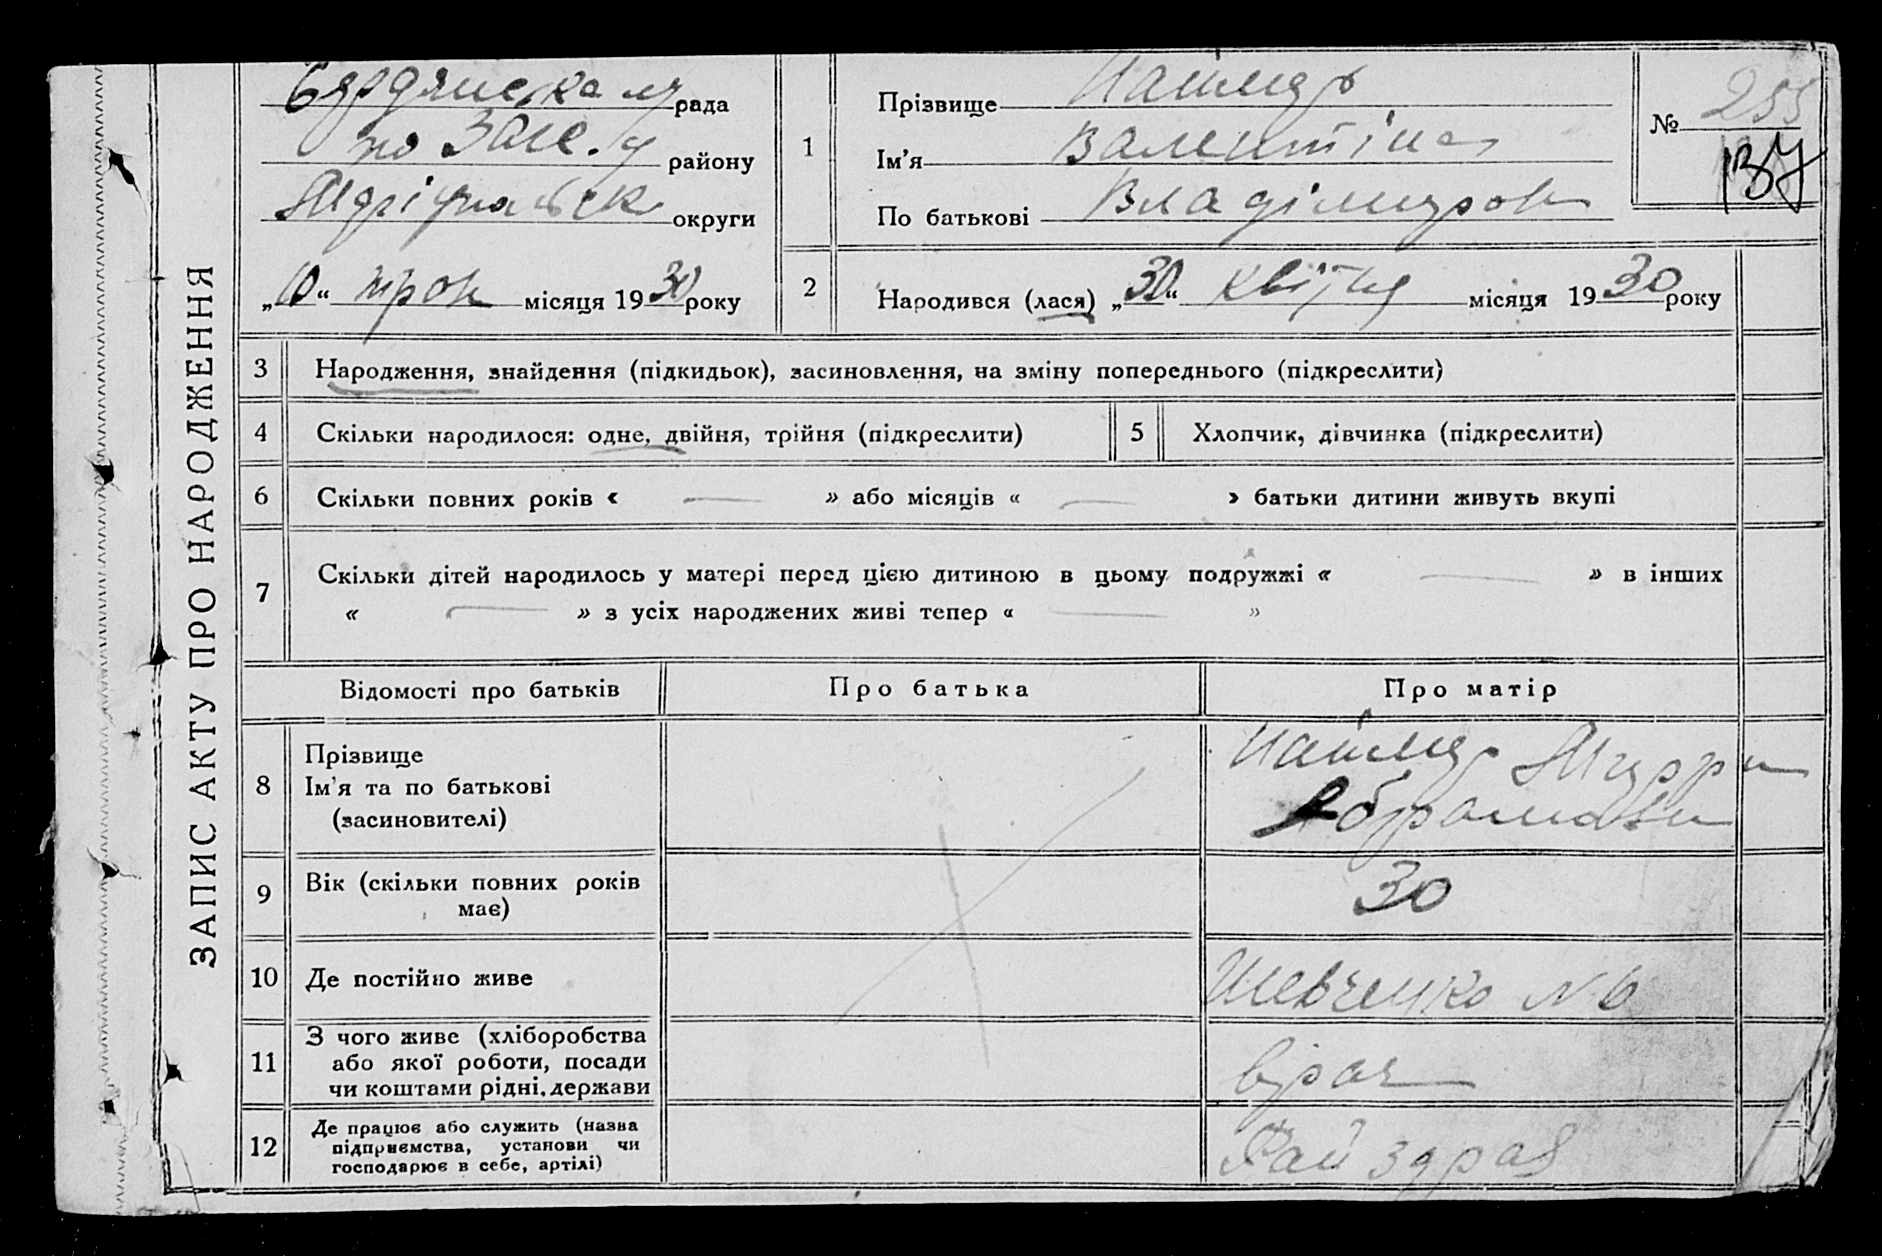 ЗАПИС АКТУ ПРО НАРОДЖЕННЯ
рада
району
округи
„10“ місяця 1930 року
1
Прізвище
Ім'я Валентіна
По батькові Владімиров
№ 255
137
2
Народився (лася) „30“ квітня місяця 1930 року
3 Народження, знайдення (підкидьок), засиновлення, на зміну попереднього (підкреслити)
4 Скільки народилося: одне, двійня, трійня (підкреслити) 5 Хлопчик, дівчинка (підкреслити)
6 Скільки повних років « — » або місяців « — » батьки дитини живуть вкупі
7 Скільки дітей народилось у матері перед цією дитиною в цьому подружжі « — » в інших
« — » з усіх народжених живі тепер « — »
Відомості про батьків Про батька Про матір
8 Прізвище
Ім'я та по батькові
(засиновителі)
9 Вік (скільки повних років має) 30
10 Де постійно живе Шевченко № 6
11 З чого живе (хліборобства
або якої роботи, посади
чи коштами рідні, держави врач
12 Де працює або служить (назва
підприємства, установи чи
господарює в себе, артілі) Рай здрав